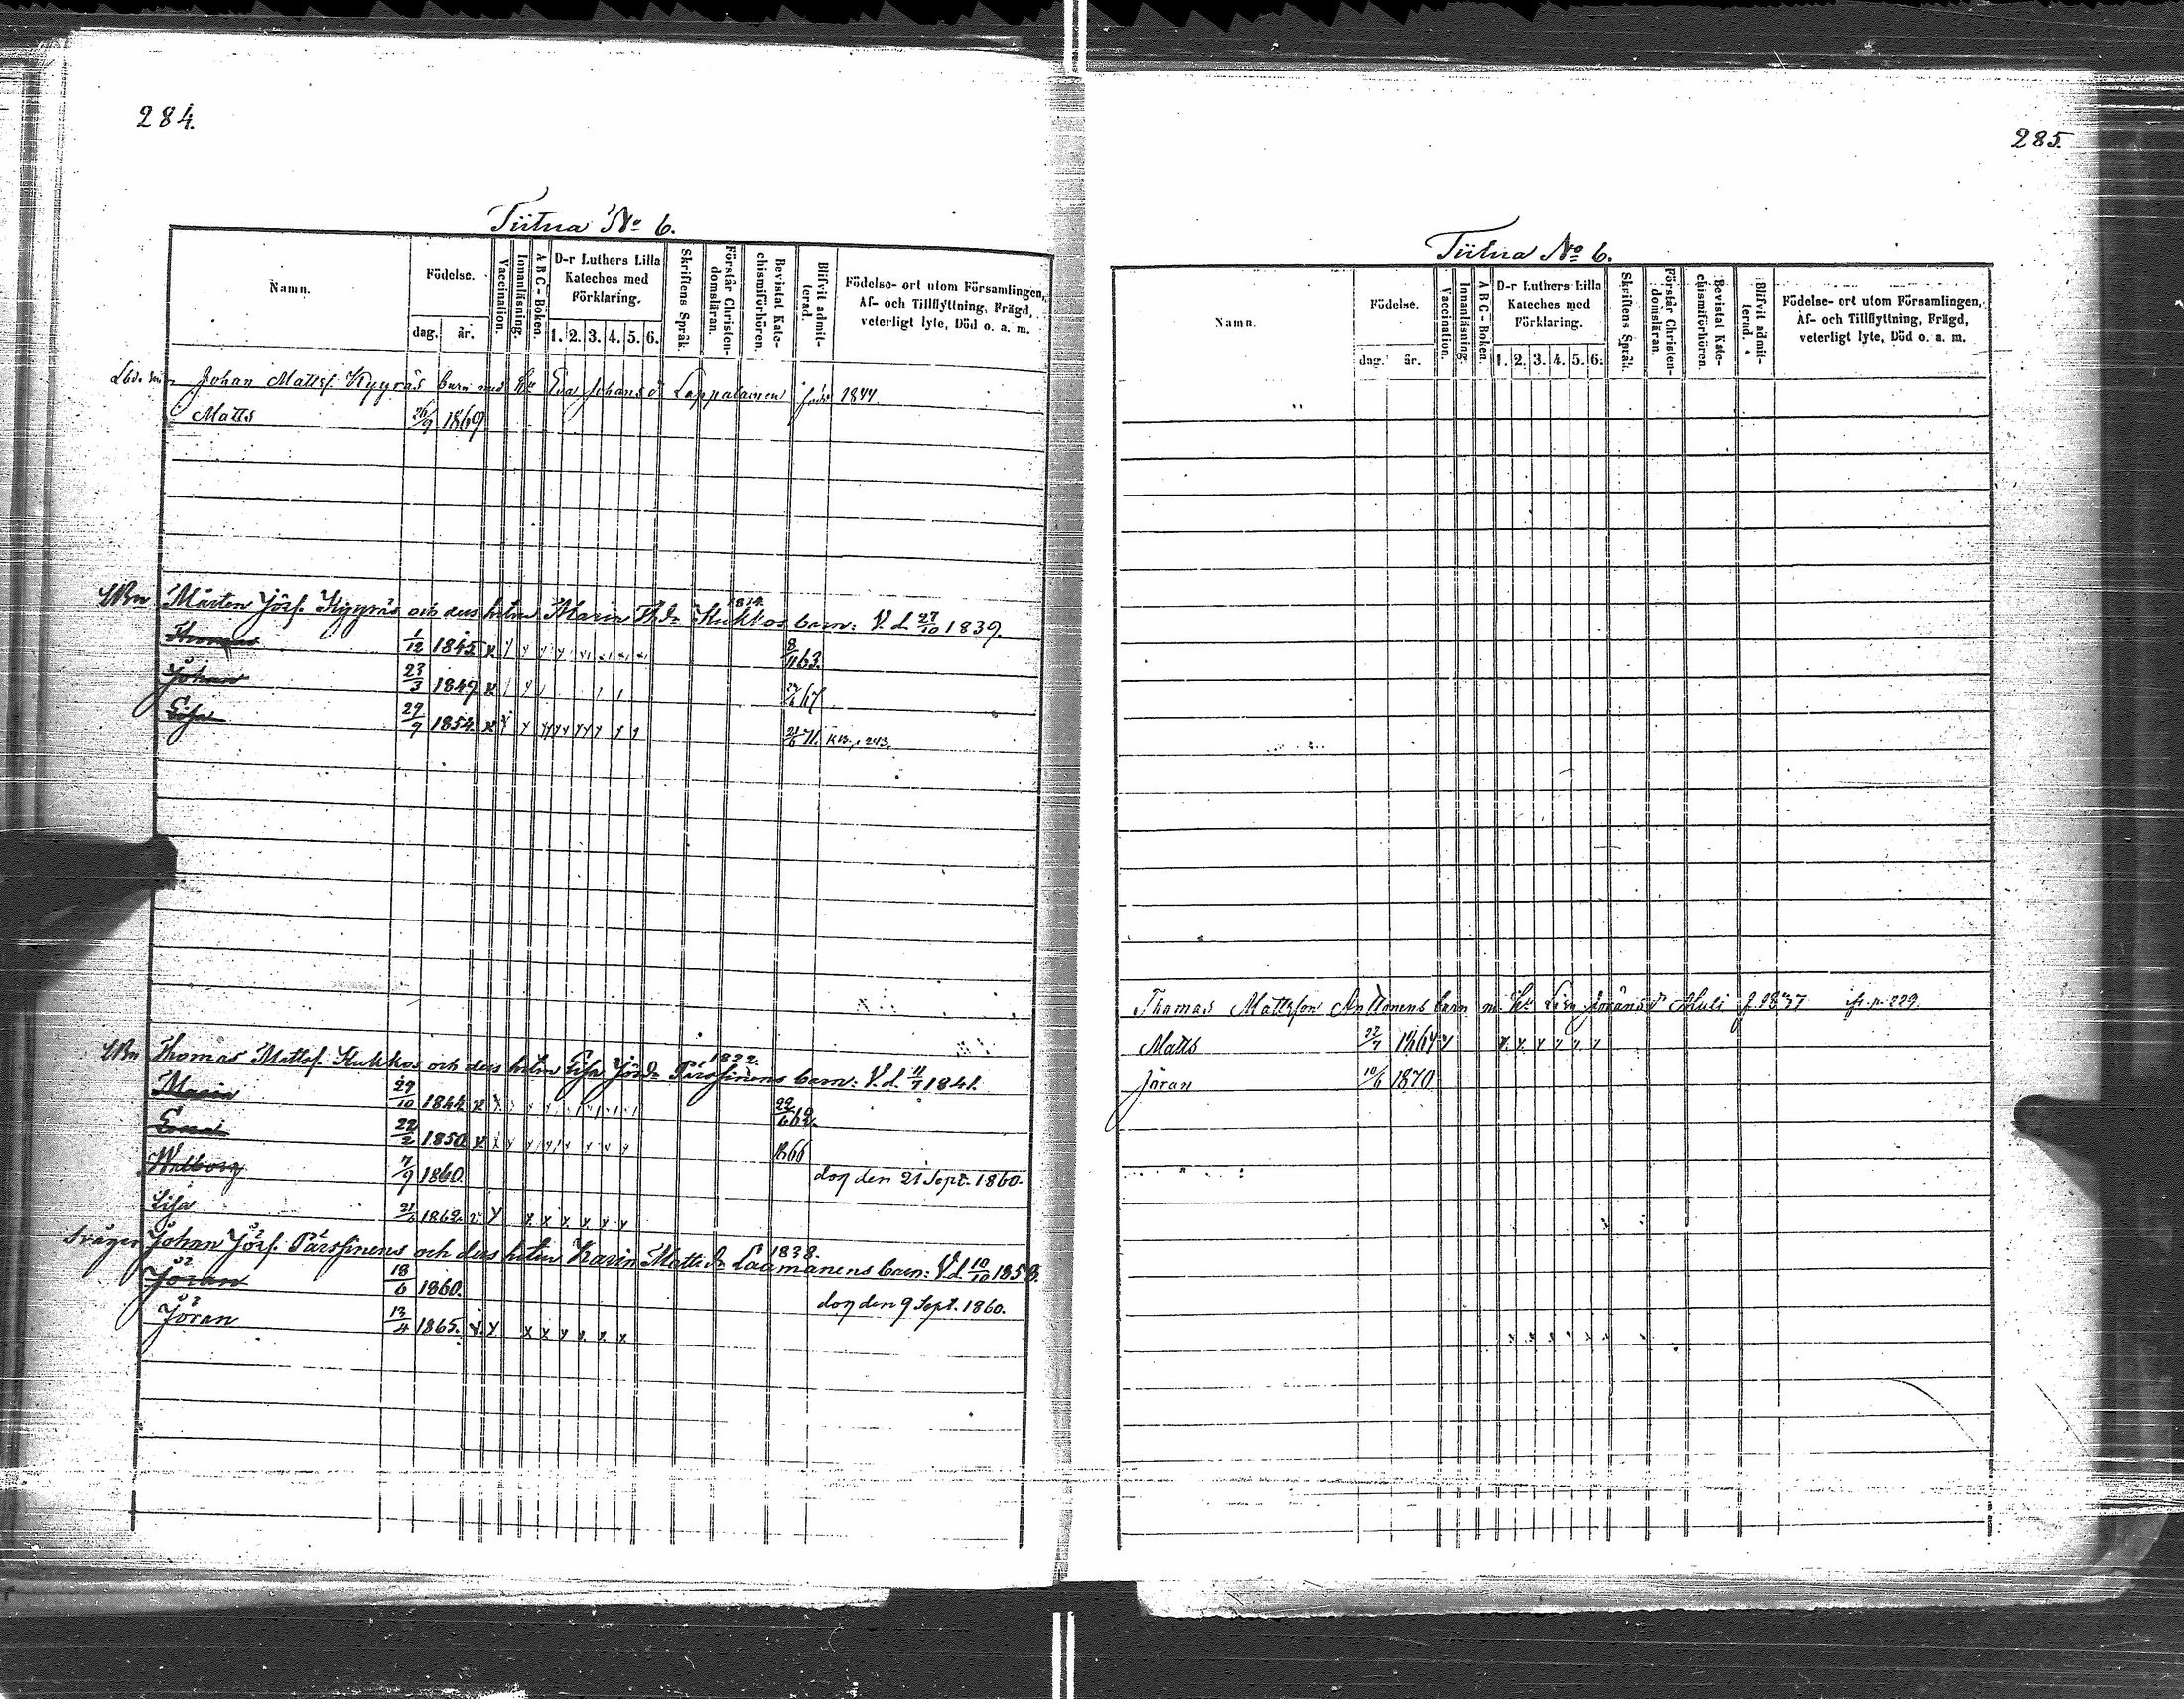 284.
Tiitua No 6.
Namn.
Födelse.
dag.
år.
Vaccination.
Innanläsning.
A B C - Boken.
D-r Luthers Lilla Kateches med Förklaring.
1. 2. 3. 4. 5. 6.
Skriftens Språk.
Förstår Christendomsläran.
Bevistat Katechismiförhören.
Blifvit admitterad.
Födelse- ort utom Församlingen, Af- och Tillflyttning, Frägd, veterligt lyte, Död o. a. m.
Johan Mattsf. Kyyräs barn med Eva Johansd Lappalainen född 1844
Matts 26/9 1869
1814.
Mårten Jörf. Kyyräs och dess hstru Maria Kukkos barn: V. d. 27/10 1839.
Thomas 1/12 1845 8/11 63.
Johan 23/3 1847 67
Lisa 29/9 1854. 71. 243.
1822.
Thomas Mattsf. Kukkos och dess hstru Lisa Jörd. Pärssinens barn: V. d. 11/7 1841.
Maria 29/10 1844 22/6 62.
22/2 1850 66
Walborg 7/9 1860. dog den 21 Sept. 1860.
Lisa 1862.
1838.
Svåger Johan Jörf. Pärssinens och dess hstru Karin Matts d. Laamanens barn: V. d. 10/10 1858.
Jöran 18/6 1860. dog den 9 Sept. 1860.
Jöran 13/4 1865.
285.
Tiitua No 6.
Namn.
Födelse.
dag.
år.
Vaccination.
Innanläsning.
A B C - Boken.
D-r Luthers Lilla Kateches med Förklaring.
1. 2. 3. 4. 5. 6.
Skriftens Språk.
Förstår Christendomsläran.
Bevistat Katechismiförhören.
Blifvit admitterad.
Födelse- ort utom Församlingen, Af- och Tillflyttning, Frägd, veterligt lyte, Död o. a. m.
Thomas Mattsson Anttonens barn m. Jöransd Muli f. 1837 p. 229.
Matts 22/7 1864
Jöran 10/6 1870